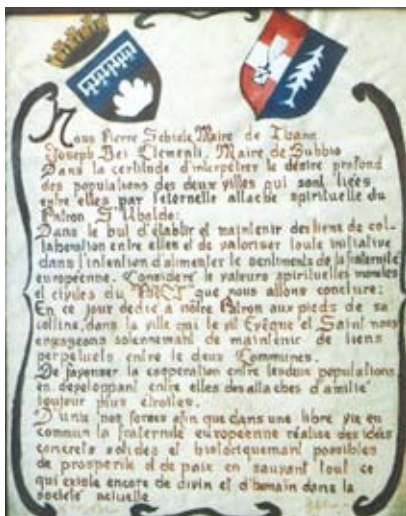 Nous Pierre Schiele Maire de Thann
Joseph Dei Clementi, Maire de Gubbio
Dans la certitude d'interpréter le désire profond
des populations des deux villes qui sont liées
entre elles par l'eternelle attache spirituelle du
Patron St Ubaldo:
Dans le but d'établir et maintenir des liens de col-
laboration entre elles et de valoriser toute initiative
dans l'intention d'alimenter le sentiments de la fraternité
européenne. Consideré le valeurs spirituelles morales
et civiles du PACT que nous allons conclure:
En ce jour dedié a nôtre Patron aux pieds de sa
colline, dans la ville qui le vit Evêque et Saint nous
engageons solennement de maintenir de liens
perpétuels entre le deux Communes.
De favoriser la cooperation entre les deux populations
en developpant entre elles des attaches d'amitié
toujour plus étroites.
D'unir nos forces afin que dans une libre vie en
commun la fraternité européenne réalise des idées
concrets solides et historiquement possibles
de prosperité et de paix en sauvant tout ce
qui existe encore de divin et d'humain dans la
société actuelle